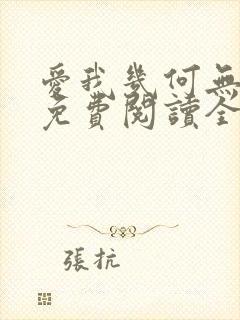 愛我幾何無
免費閱讀全
張抗